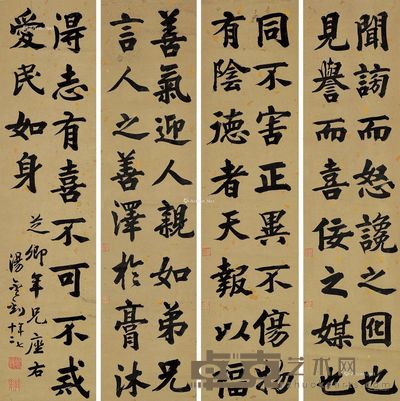 聞謗而怒讒之囮也
見譽而喜佞之媒也
同不害正異不傷物
有陰德者天報以福
善氣迎人親如弟兄
言人之善澤於膏沐
得志有喜不可不戒
愛民如身
芝卿年兄座右
湯金釗